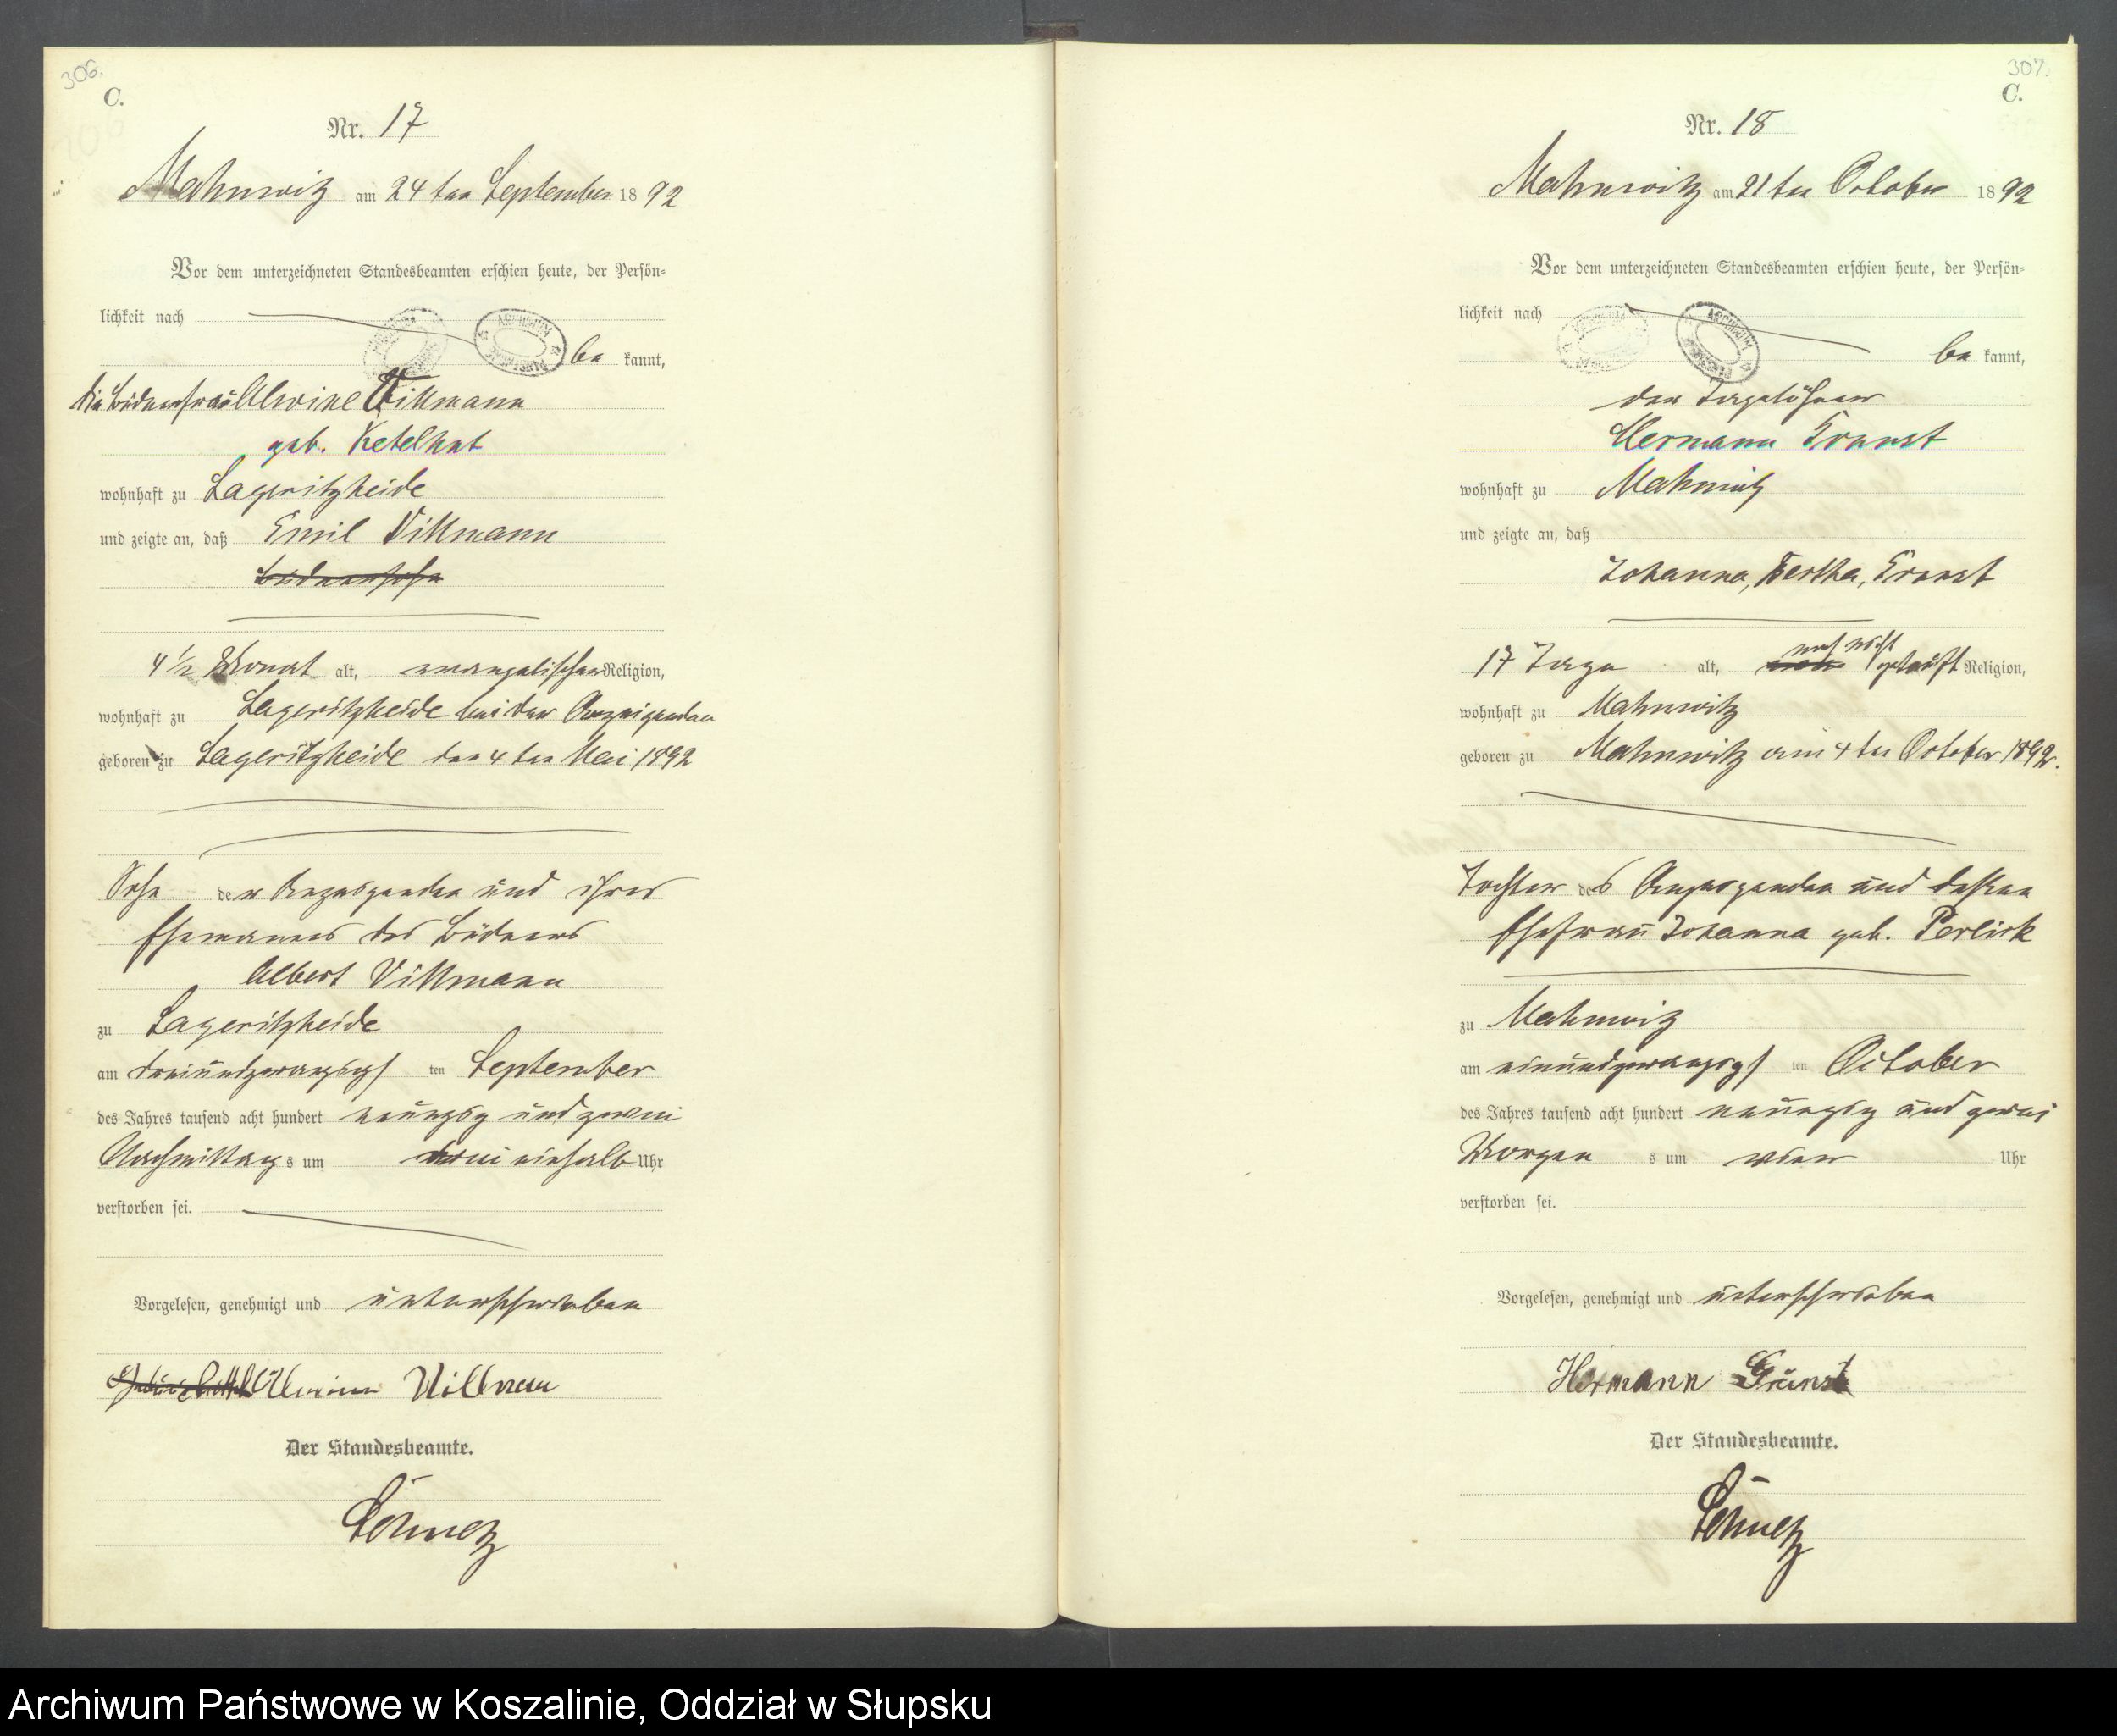 306.
C.
Nr. 17
Mahnwitz am 24ten September 1892
Vor dem unterzeichneten Standesbeamten erschien heute, der Persön-
lichkeit nach
be kannt,
die Büdnerfrau Alwine Villmann
geb. Ketelhut
wohnhaft zu Lageritzheide
und zeigte an, daß Emil Villmann
Büdnersohn
4 1/2 Monat alt, evangelischer Religion,
wohnhaft zu Lageritzheide bei der Anzeigenden
geboren zu Lageritzheide den 4ten Mai 1892
Sohn der Anzeigenden und ihres
Ehemannes des Büdners
Albert Villmann
zu Lageritzheide
am dreiundzwanzigsten September
des Jahres tausend acht hundert neunzig und zwei
Nachmittags um einhalb Uhr
verstorben sei.
Vorgelesen, genehmigt und unterschrieben
Alwine Villman
Der Standesbeamte.
307.
C.
Nr. 18
Mahnwitz am 21ten October 1892
Vor dem unterzeichneten Standesbeamten erschien heute, der Persön-
lichkeit nach
be kannt,
der Tagelöhner
Hermann Ernst
wohnhaft zu Mahnwitz
und zeigte an, daß
Johanna, Bertha, Ernst
17 Tage alt, noch nicht getauft Religion,
wohnhaft zu Mahnwitz
geboren zu Mahnwitz am 4ten October 1892.
Tochter des Anzeigenden und dessen
Ehefrau Johanna geb. Perlick
zu Mahnwitz
am einundzwanzigsten October
des Jahres tausend acht hundert neunzig und zwei
Morgens um vier Uhr
verstorben sei.
Vorgelesen, genehmigt und unterschrieben
Hermann
Der Standesbeamte.
Archiwum Państwowe w Koszalinie, Oddział w Słupsku